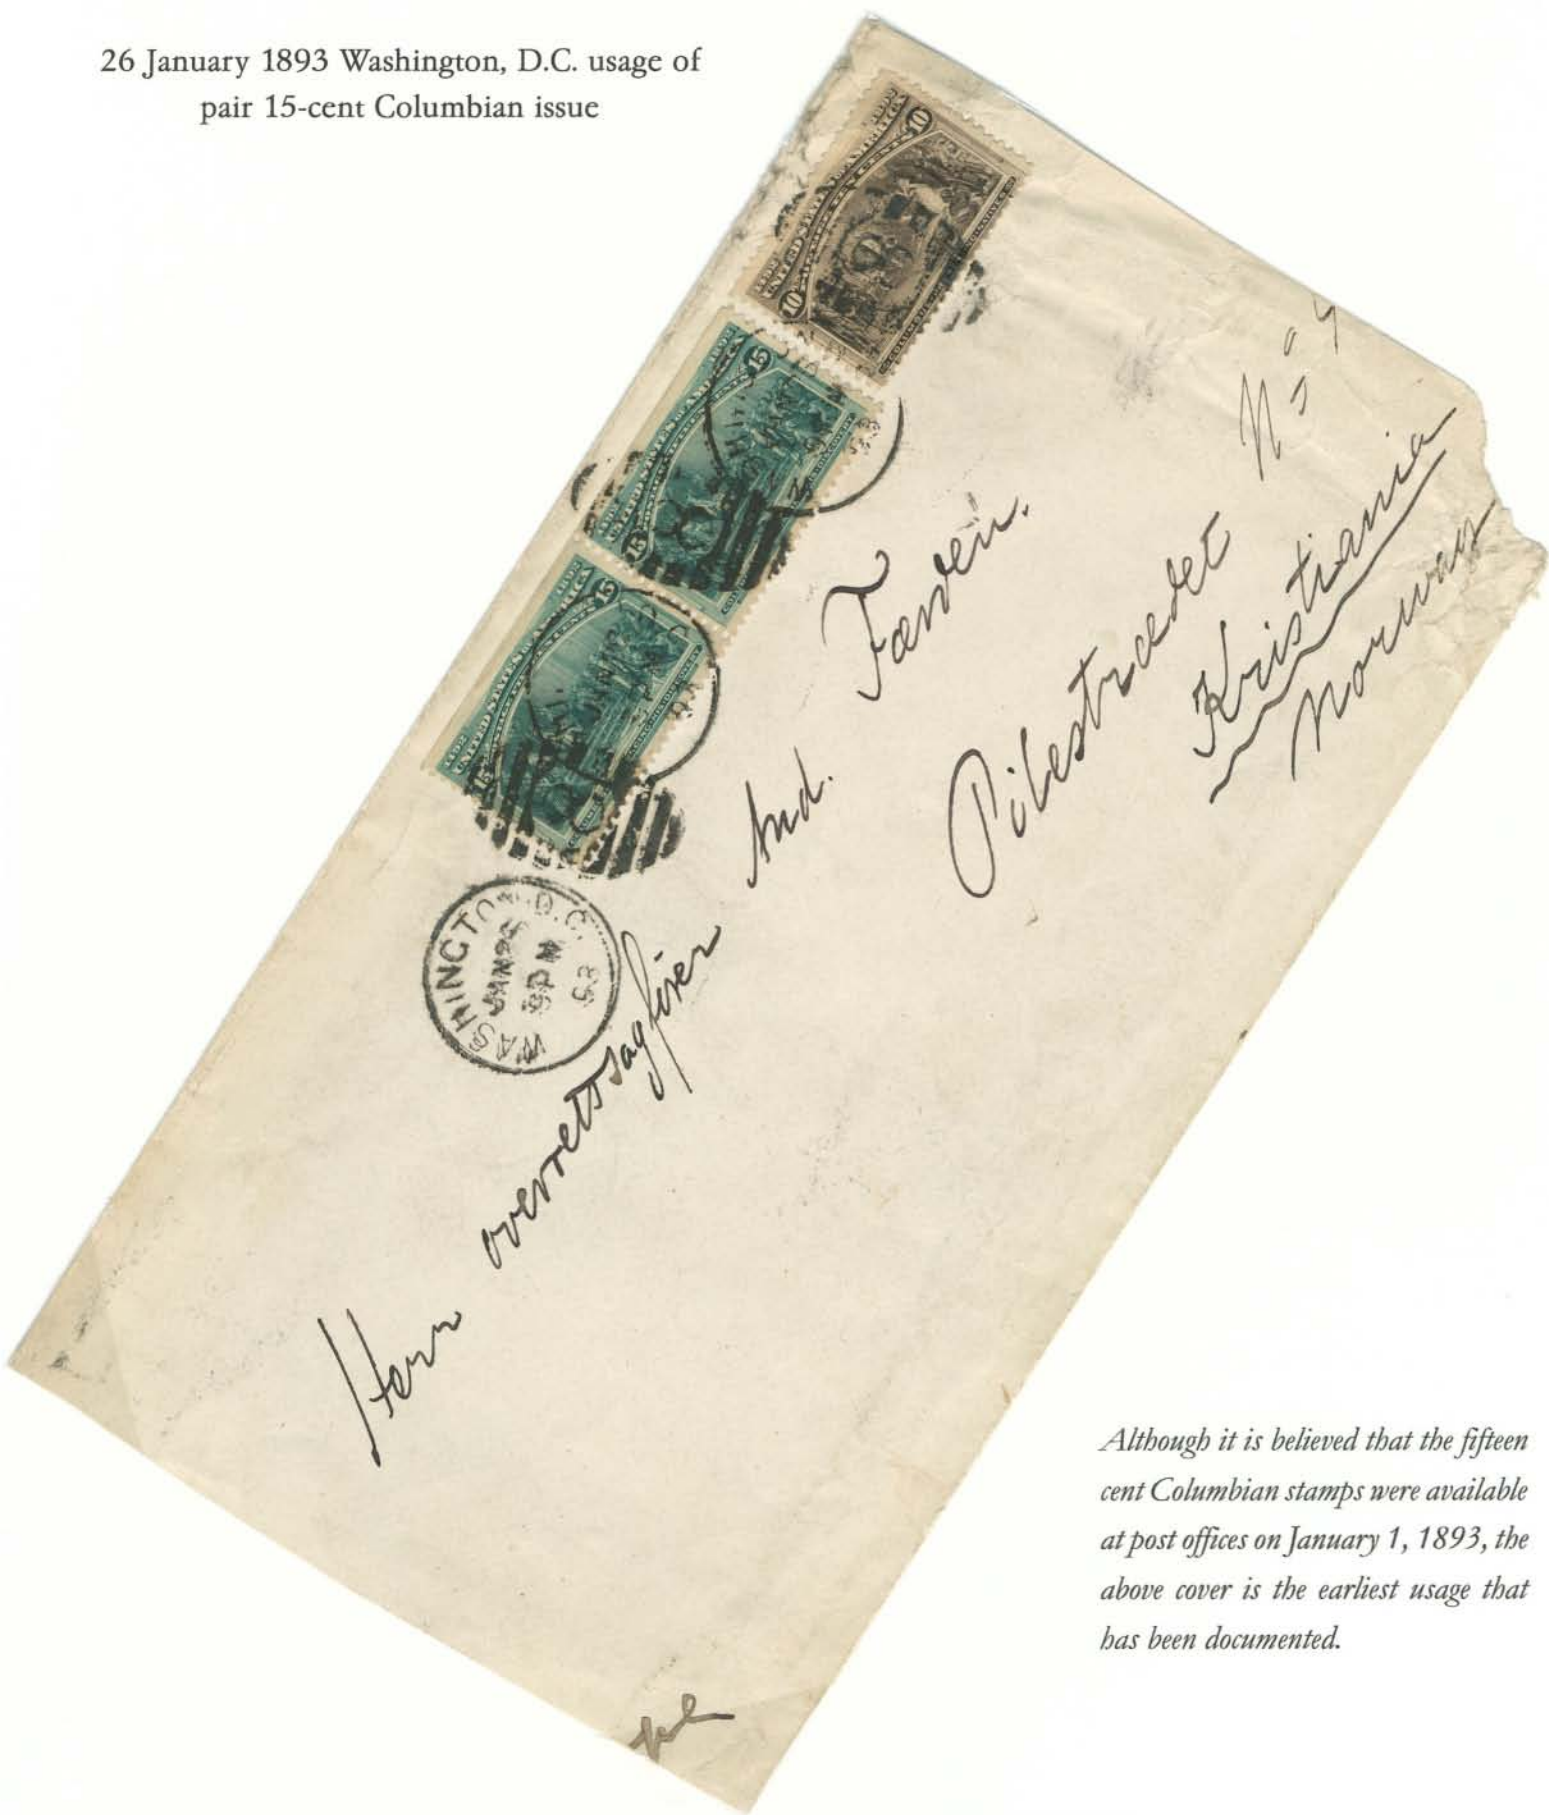 26 January 1893 Washington, D.C. usage of
pair 15-cent Columbian issue
1492
1892
UNITED STATES OF AMERICA
10
10
15
15
UNITED STATES OF AMERICA
15
15
UNITED STATES OF AMERICA
WASHINGTON, D.C.
JAN 26
93
Herr overretssagfører And.
Pilestrædet N
Kristiania
Norway
Although it is believed that the fifteen
cent Columbian stamps were available
at post offices on January 1, 1893, the
above cover is the earliest usage that
has been documented.